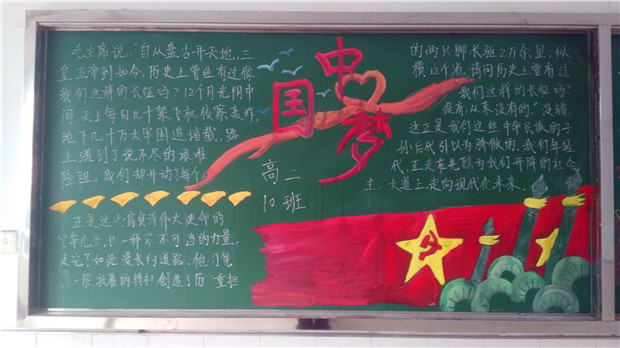 毛主席说:"自从盘古开天地,三
皇五帝到如今,历史上曾经有过像
我们这样的长征吗?12个月光阴中
间,天上每日几十架飞机侦察轰炸,
地下几十万大军围追堵截,路
上遇到了说不尽的艰难
险阻,我们却开动了每个人
的两只脚长驱2万余里,纵
横12个省。请问历史上曾有过
我们这样的长征吗?
没有,从来没有的。"没错,
这正是我们这些中华民族的子
孙后代引以为骄傲的。我们年轻一
代,正走在先烈为我们开辟的社会
主大道上走向现代化未来。
中国梦
高二
10班
正是这些肩负着伟大使命的
中华儿女,以一种不可当的力量,
走完了如此漫长的道路。他们凭
一股执着的精神创造了历